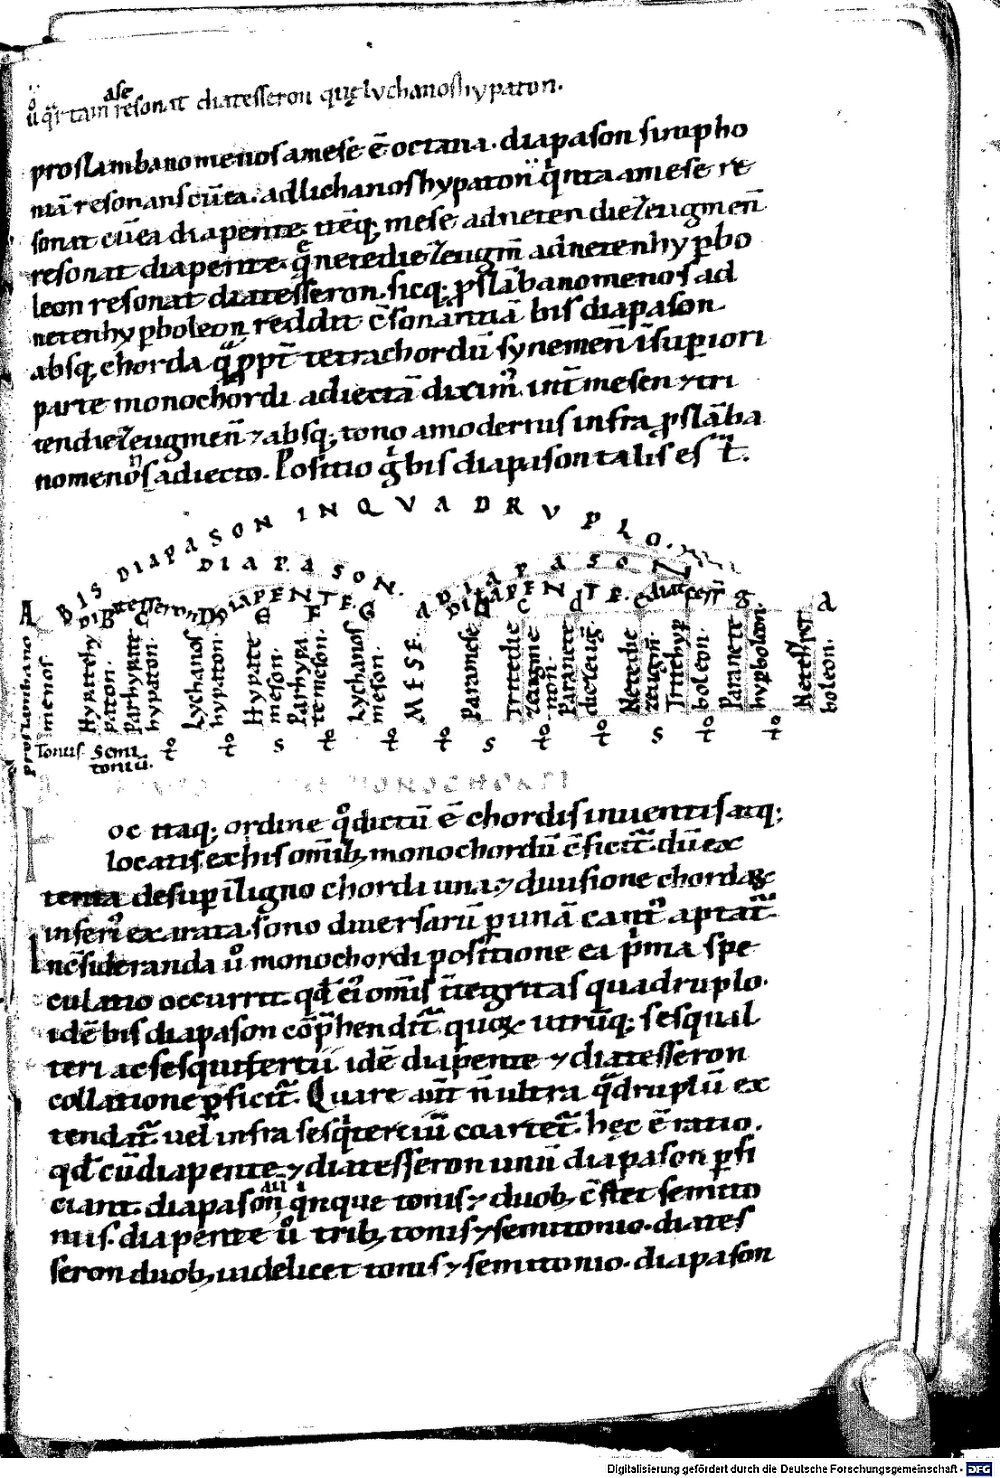 ů q̈rtam resonat diatesseron quę lychanos hypaton.
ase
proslambanomenos a mese ē octaua. diapason simpho
niā resonans cū ea. ad lichanos hypaton ü q̍nta a mese re
sonat cū ea diapente. itēq; mese ad neten diezeugmeñ
resonat diapente. q̄ netediezeugm̄ ad neten hyꝑbo
leon resonat diatesseron. sicq; ꝓslābanomenos ad
neten hyꝑboleon reddit c̄sonantiā bis diapason
absq; chorda q̄ ꝓpt̄ tetrachordū synemeñ ī supiori
parte monochordi adiectā dixim᷒ int̄ mesen ⁊ tri
ten diezeugmeñ ⁊ absq; tono a modernis infra ꝓslāba
nomenos adiecto. Positio g̍ bis diapason talis es t̄.
BIS DIAPASON IN QVADRVPLO.
DIAPASON. DIAPASON
DIAtesseron DIAPENTE DIAPENTE diatesser̄
A B C D E F G a c d e g a
proslambano menos
Hypatehy paton.
Parhypate hypaton.
Lychanos hypaton.
Hypate meson.
Parhypa temeson.
Lychanos meson.
MESE.
Paramese
Tritedie zeugme non.
Paranete diezeug̃
Netedie zeugm̄
Tritehyp boleon.
Paranete hypboleon.
Netehyper boleon.
Tonus Semi toniū.
MONOCHORDI
oc itaq; ordine q̊ dictū ē chordis inuentis atq;
locatis ex his om̄ib; monochordū c̄ficit̄. dū ex
tenta desup̄ ligno chorda una ⁊ diuisione chordaꝝ
inferi᷒ exarata. sono diuersarū ꝑ unā cant᷒ aptat̄.
In c̄sideranda ů monochordi positione ea p̍ma spe
culatio occurrit. qd̄ ei᷒ om̄is īntegritas quadruplo.
idē bis diapason cōp̍hendit̄. quoꝝ utrūq; sesqual
teri ac sesquitertii idē diapente ⁊ diatesseron
collatione ꝑficit̄. Quare aūt n̄ ultra q̄druplū ex
tendat̄. uel infra sesq̍terciū coartet̄. hęc ē ratio.
qd̄ cū diapente ⁊ diatesseron unū diapason ꝑfi
ciant. diapason q̍nque tonis ⁊ duob; c̄stet semito
aū
niis. diapente ů trib; tonis ⁊ semitonio. diates
seron duob; uidelicet tonis ⁊ semitonio. diapason
Digitalisierung gefördert durch die Deutsche Forschungsgemeinschaft - DFG